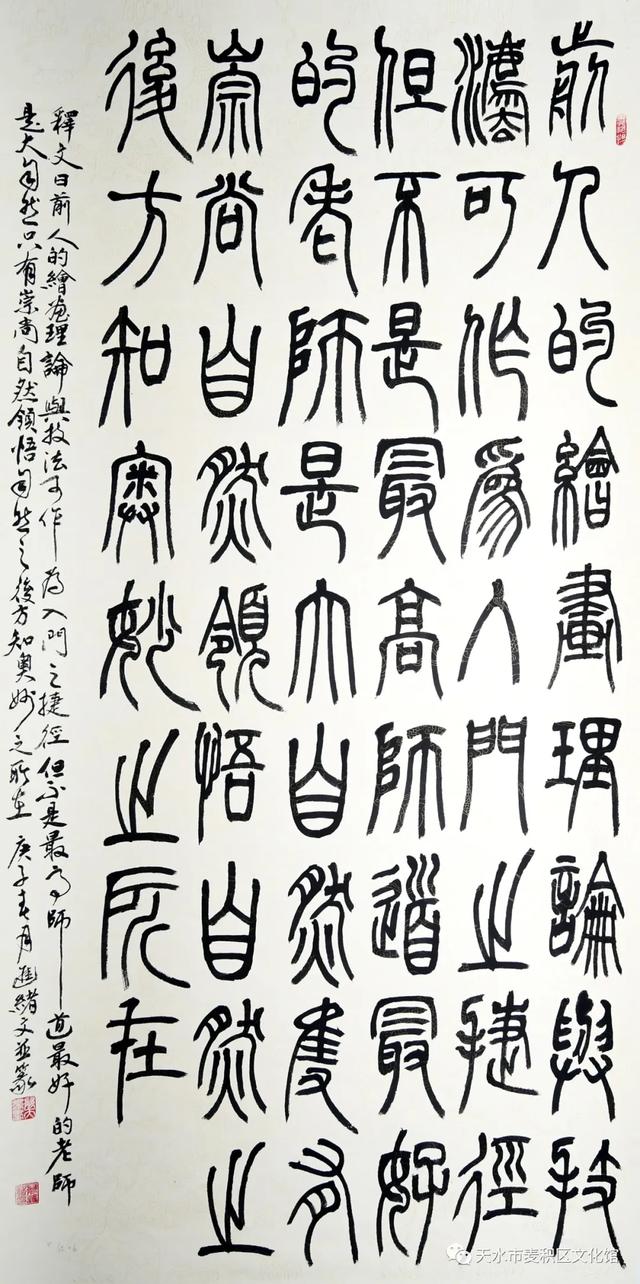 前人的繪畫理論與技
灋可作爲入門之捷徑
但不是最高師道最好
的老師是大自然隻有
崇尚自然領悟自然之
後方知奧妙之所在
釋文曰前人的繪畫理論與技法可作為入門之捷徑但不是最高師道最好的老師
是大自然只有崇尚自然領悟自然之後方知奧妙之所在 庚子春月進緒文並篆
天水市麦积区文化馆